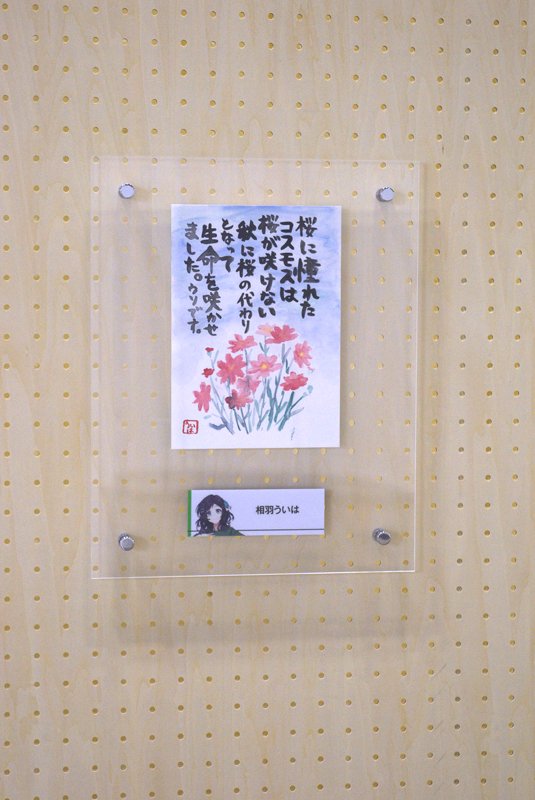 桜に憧れた
コスモスは
桜が咲けない
秋に桜の代わり
となって
生命を咲かせ
ました。ウソです。
相羽ういは